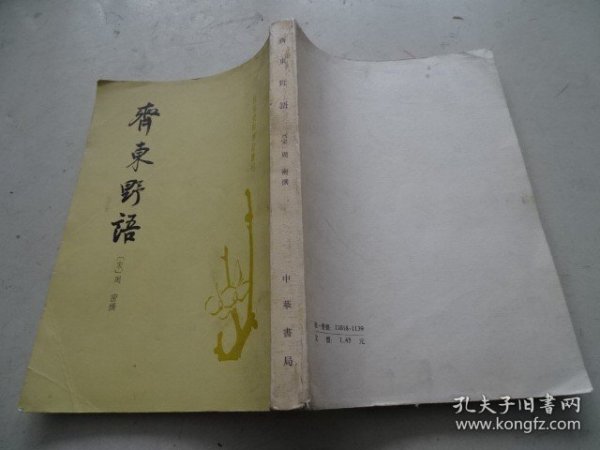 齊東野語
〔宋〕周密撰
唐宋史料筆記叢刊
齊東野語
〔宋〕周密撰
中華書局
統一書號：11018·1139
定價：1.45 元
孔夫子旧书网
www.kongfz.com